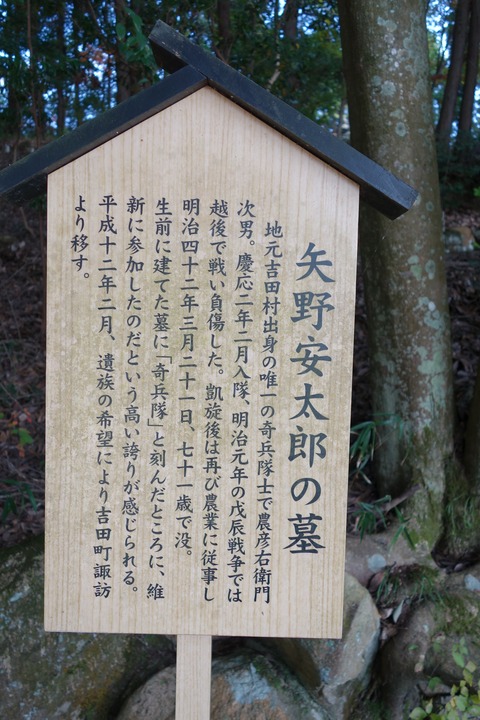 矢野安太郎の墓
地元吉田村出身の唯一の奇兵隊士で農彦右衛門
次男。慶応二年二月入隊、明治元年の戊辰戦争では
越後で戦い負傷した。凱旋後は再び農業に従事し
明治四十二年三月二十一日、七十一歳で没。
生前に建てた墓に「奇兵隊」と刻んだところに、維
新に参加したのだという高い誇りが感じられる。
平成十二年二月、遺族の希望により吉田町諏訪
より移す。